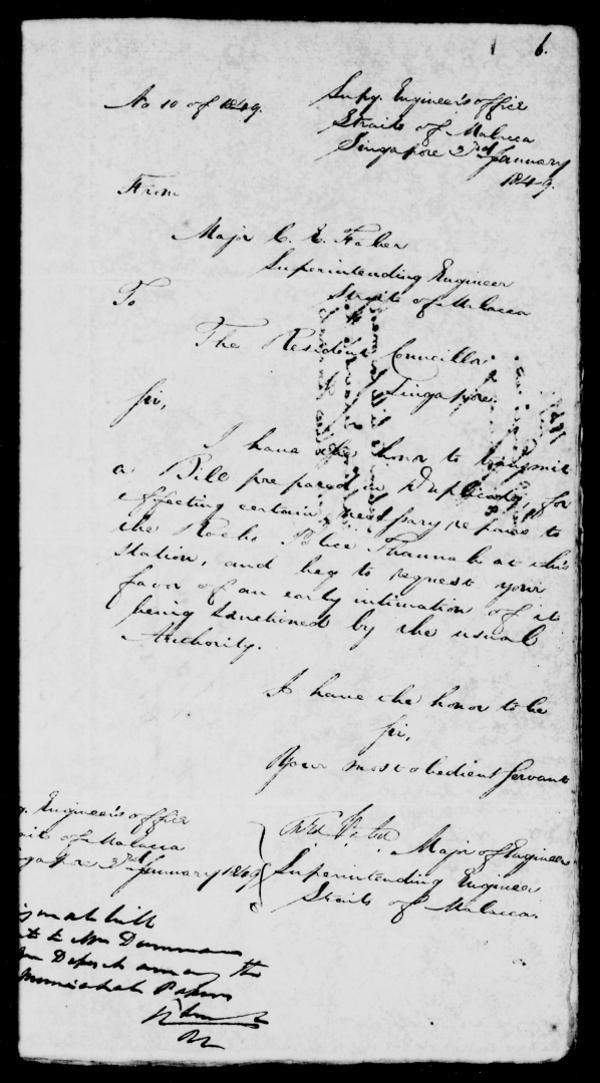 6.
No 10 of 1849.
Supg. Engineer's office
Straits of Malacca
Singapore 3rd January
1849.
From
Major C. E. Faber
Superintending Engineer
Straits of Malacca
To
The Resident Councillor
Singapore.
Sir,
I have the honor to transmit
a Bill prepared in Duplicate, for
effecting certain necessary repairs to
the Police Thannah at this
station, and beg to request your
favor of an early intimation of it
being Sanctioned by the usual
Authority.
I have the honor to be
Sir,
Your most obedient Servant
Major of Engineers
Superintending Engineer
Straits of Malacca.
g. Engineer's office
ait of Malacca
gapore 3rd January 1849
bill
to Mr Dunman
among the
Papers